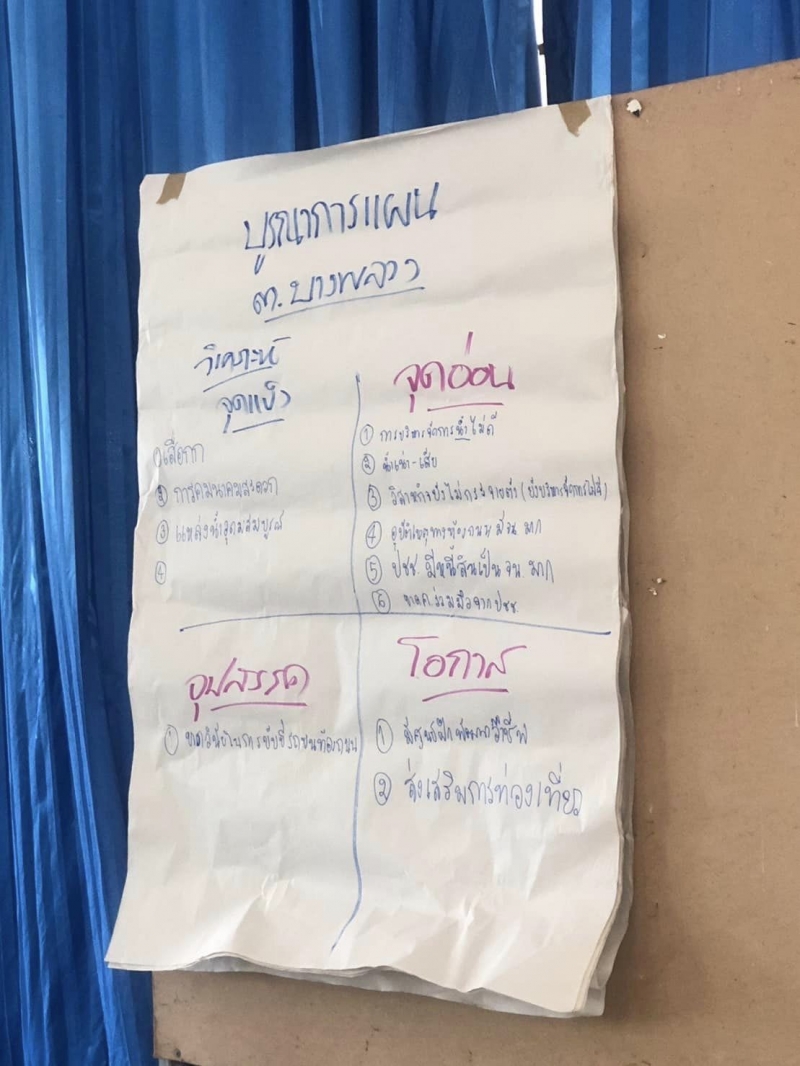 บูรณาการแผน
ต.บางพลวง
วิเคราะห์
จุดแข็ง
①
② การคมนาคมสะดวก
③ แหล่งน้ำอุดมสมบูรณ์
④
จุดอ่อน
① การบริหารจัดการน้ำไม่ดี
② น้ำเน่า-เสีย
③ วิสาหกิจยังไม่
④ อุบัติเหตุทางท้องถนน มาก
⑤ ปชช. มีหนี้สินเป็น จน. มาก
⑥ ขาดความร่วมมือจาก ปชช.
อุปสรรค
① ขาดวินัยในการขับขี่รถบนท้องถนน
โอกาส
① มีศูนย์ฝึกพัฒนาวิชาชีพ
② ส่งเสริมการท่องเที่ยว